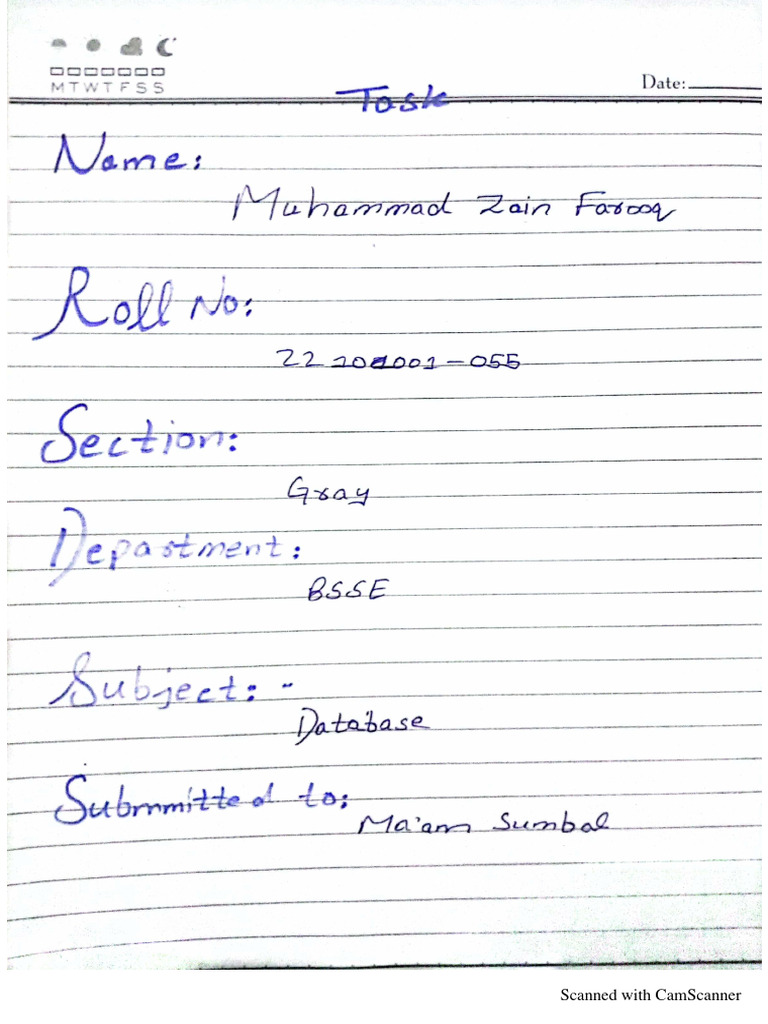 M T W T F S S
Date:
Task
Name:
Muhammad Zain Farooq
Roll No:
Section:
Gray
Department:
BSSE
Subject: -
Database
Submmitted to:
Ma'am Sumbal
Scanned with CamScanner